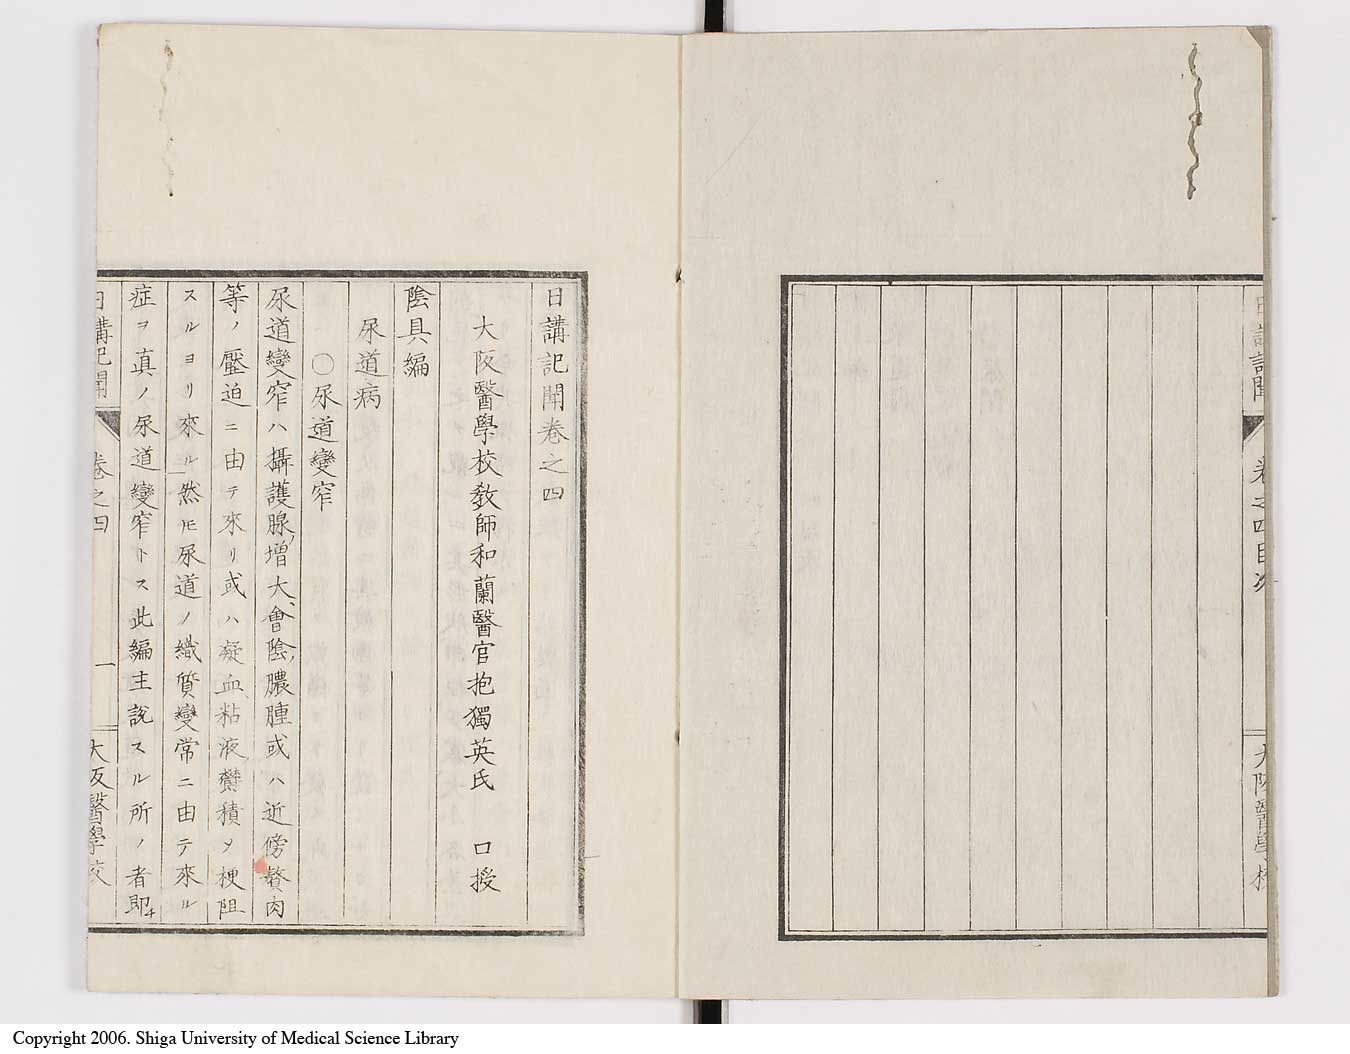 日講記聞
卷之四目次
大阪醫學校
日講記聞卷之四
大阪醫學校敎師和蘭醫官抱獨英氏　口授
陰具編
尿道病
〇尿道變窄
尿道變窄ハ攝護腺増大、會陰膿腫或ハ近傍贅肉
等ノ壓迫ニ由テ來リ或ハ凝血、粘液鬱積メ梗阻
スルヨリ來ル然𪜈尿道ノ織質變常ニ由テ來ル
症ヲ真ノ尿道變窄トス此編主說スル所ノ者即チ
日講記聞
卷之四
一
大阪醫學校
Copyright 2006. Shiga University of Medical Science Library